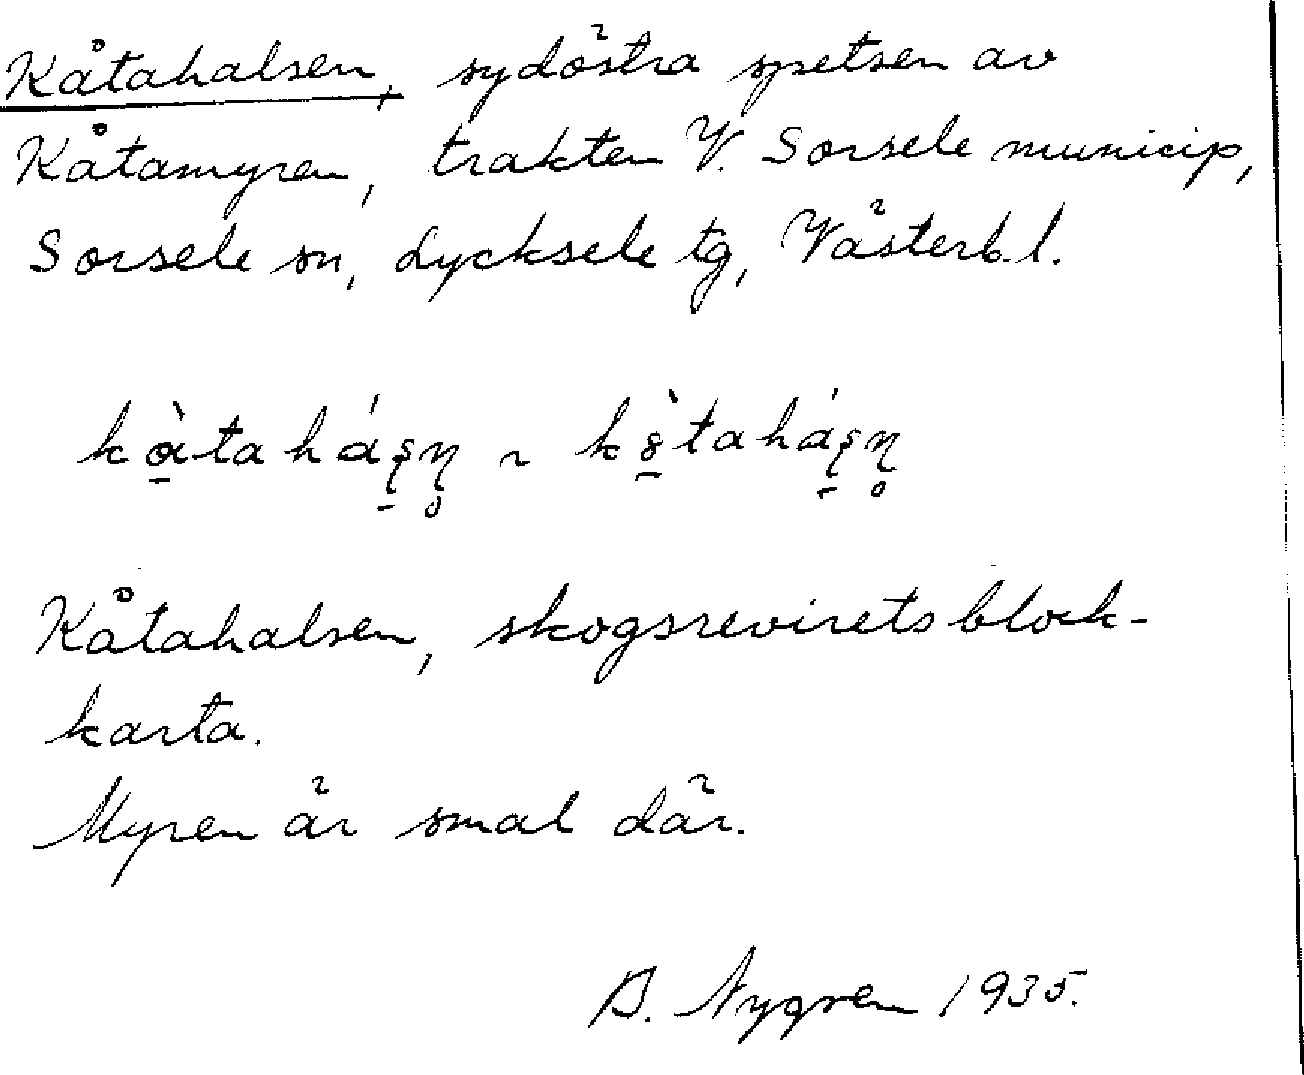 Kåtahalsen, sydöstra spetsen av
Kåtamyren, trakten V. Sorsele municip,
Sorsele sn, Lycksele tg, Västerb. l.
Kåtahalsen, skogsrevirets block-
karta.
Myren är smal där.
B. Nygren 1935.